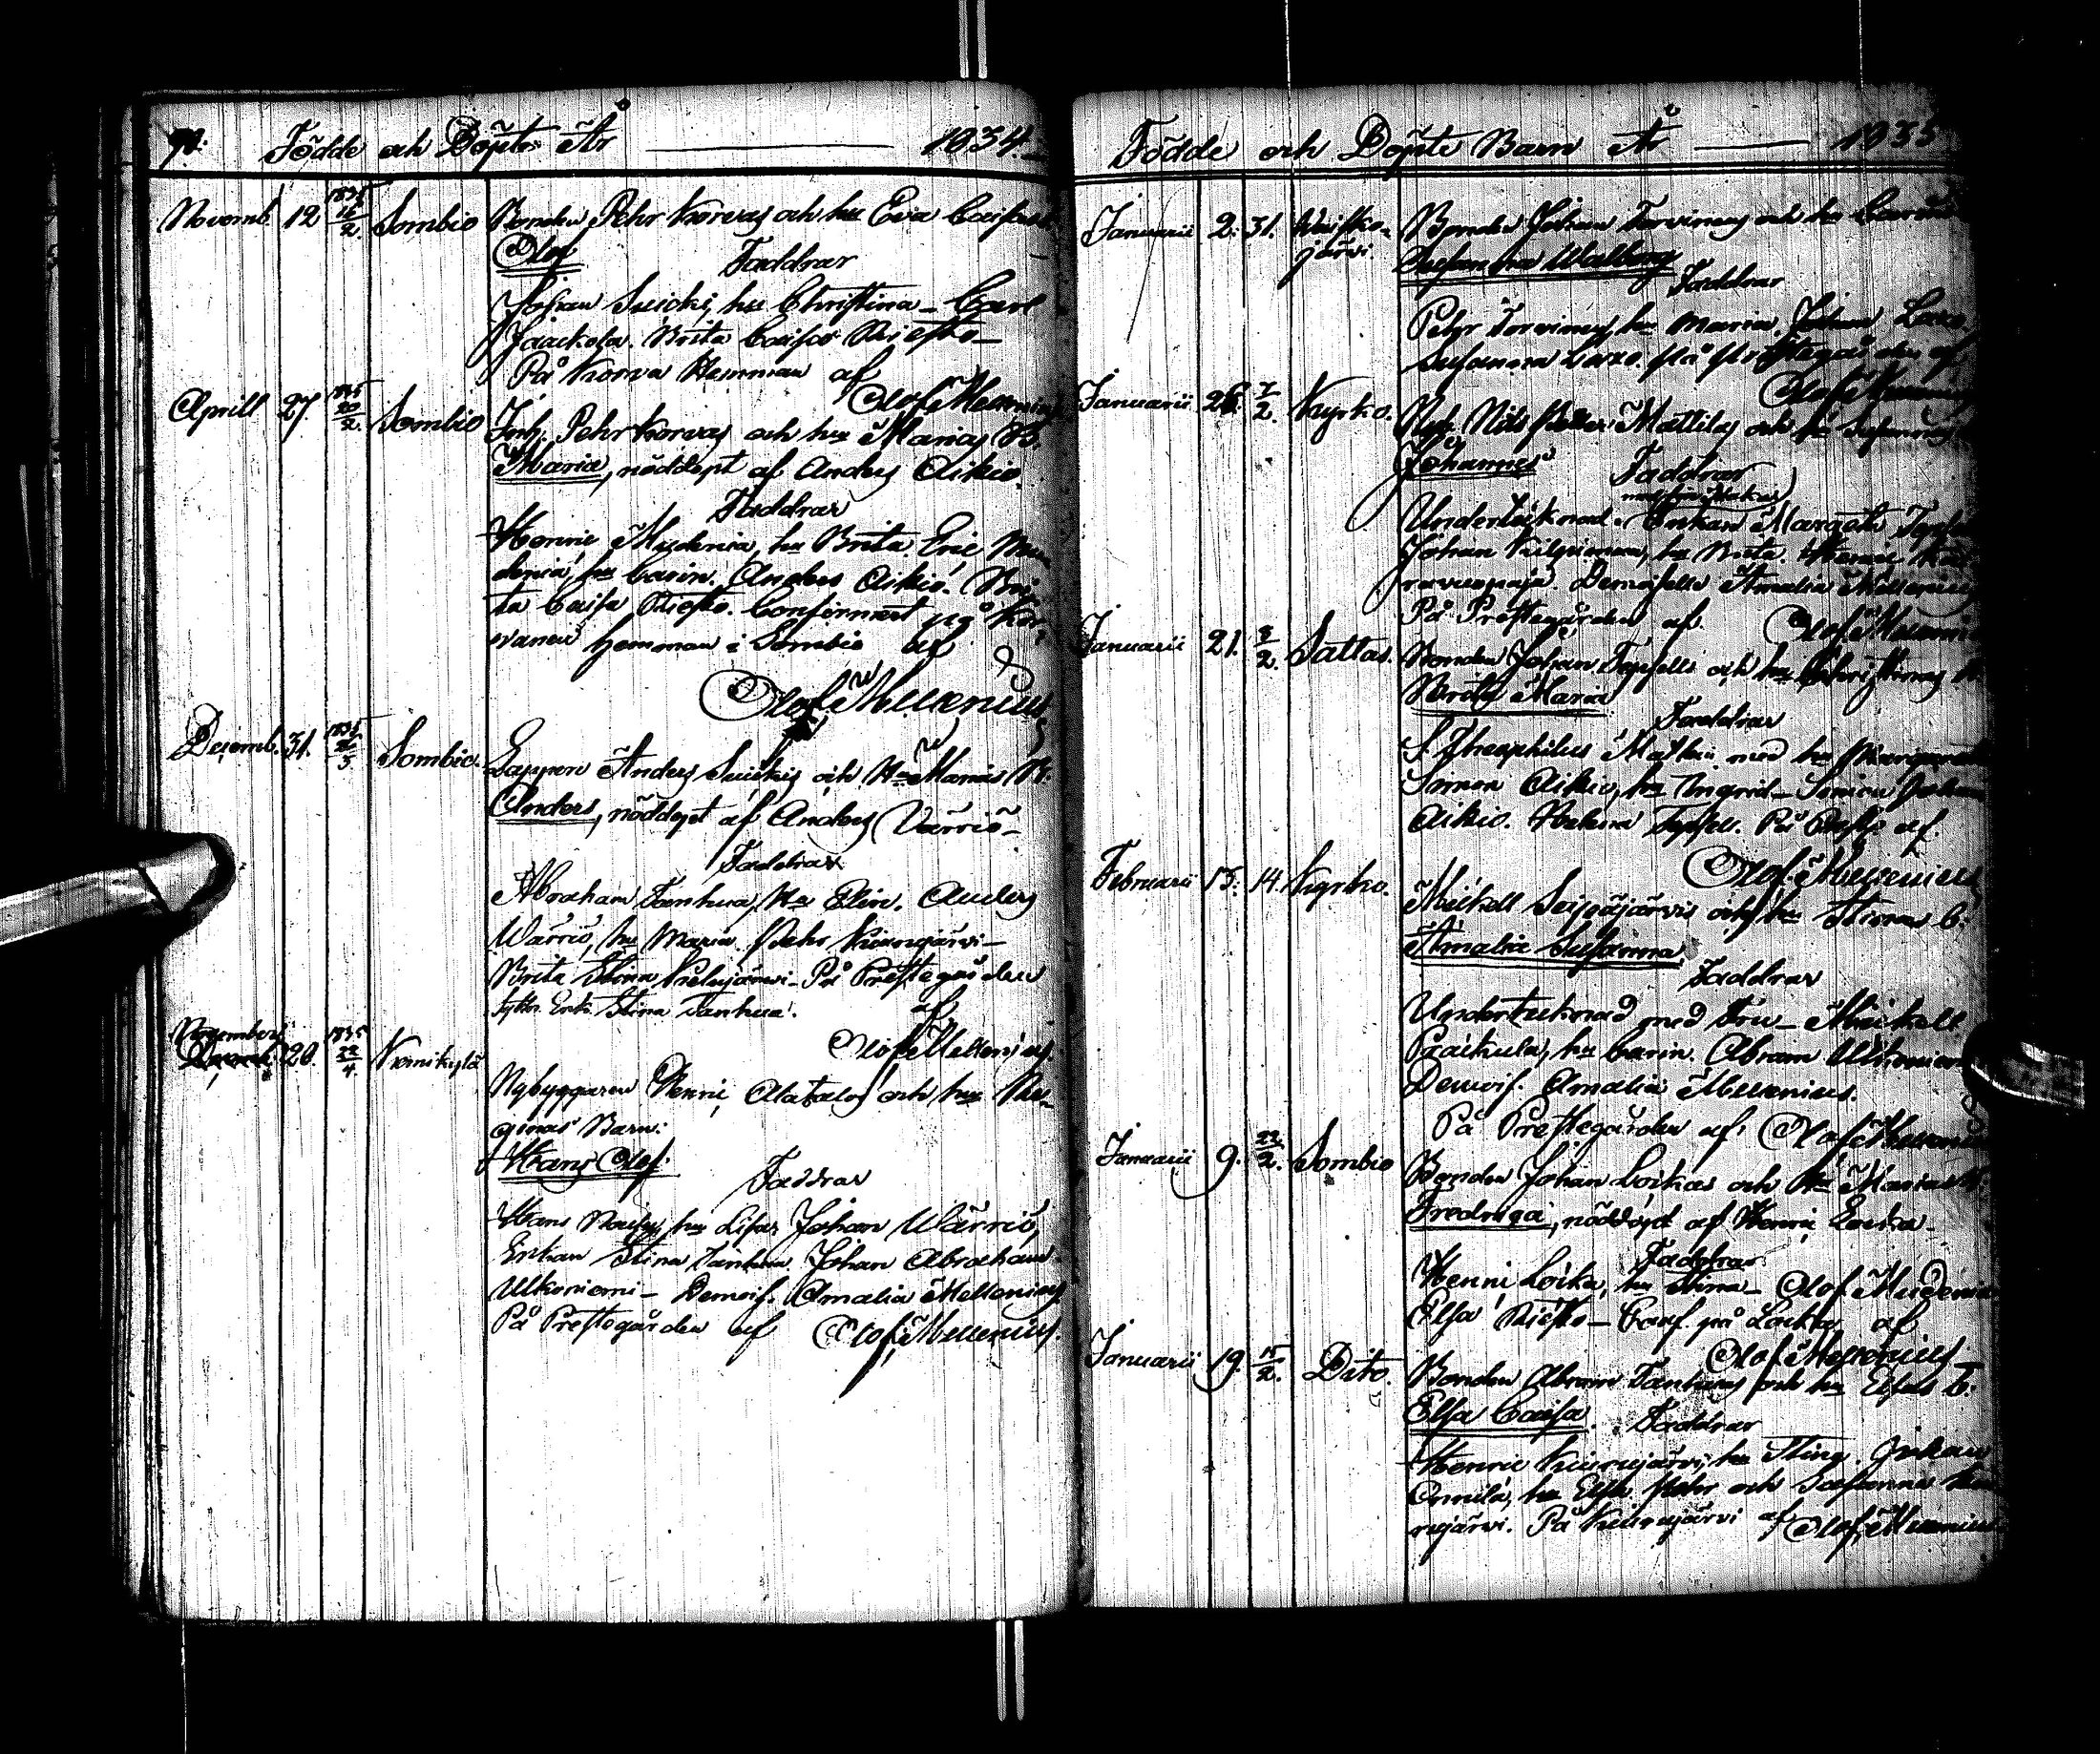 Födde och Döpte År 1834.
Novemb. 12 1835 16/2. Sombio Bonden Pehr Korvas och hu Eva Caisas
Olof Faddrar
Johan Suicki, hu Christina Carl
Jaackola. Brita Caisa Riesto
På Korva Hemman af
Olof Mellenius
Aprill 27. 1835 20/2. Sombio Inh. Pehr Korvas och hu Marias B.
Maria, nöddöpt af Anders Aikio.
Faddrar
Henric Mudenia, hu Brita Eric Mu
denia, hu Carin. Anders Aikio. Bri
ta Caisa Riesto. Confirmert på Kor
vanen hemman i Sombio af
Olof Mellenius
Decemb. 31. 1835 3 Sombio. Lappen Anders Suickis och Hu Marias B.
Anders, nöddöpt af Anders Värriö
Faddrar
Abraham Tanhua, Hu Elin. Anders
Wärriö, hu Maria. Pehr Kiurujärvi
Brita Stina Kiurujärvi. På Prestegården
Enk. Stina Tanhua. af
Olof Mellenius.
Novembers 20. 1835 22/4. Kemikylä
Nybyggaren Henric Alatalos och hu Re
ginas Barn:
Hans Olof. Faddrar
Hans hu Lisa. Johan Wärriö,
Enkan Stina Tanhua. Johan Abraham
Ulkoniemi Demois. Amalia Mellenius
På Prestegården af Olof Mellenius.
Födde och Döpte Barn År 1835
Januarii 2. 31. Waisko-
järvi. Bonden Johan Torvinens och hu Carins
Susanna Walborg
Faddrar
Pehr Torvinen, hu Maria. Johan
Susanna på Prestegården af
Olof Mellenius
Januarii 26. 7/2. Kyrko. Nyb. Nils Petter Mattilas och hu Susannas
Johannes Faddrar
Undertecknad. Enkan Margeta
Johan Kilpimaa, hu Brita. Henric
Demoiselle Amalia Mellenius
På Prestegården af Olof Mellenius
Januarii 21. 8/2. Sattas. Bonden Johan Tepsells och hu Christinas B.
Brita Maria
Faddrar
S. Theophilus Matheii med hu Margareta
Simon Aikio, hu Ingrid Simon Johan
Aikio. Helena Tepsell. På af.
Olof Mellenius
Februarii 13. 14. Kyrko. Mickell Seipäjärvis och hu Stinas B.
Amalia Susanna.
Faddrar
Undertecknad med Fru Mickell
Paickula, hu Carin. Abram Ulkoniemi
Demois. Amalia Mellenius.
På Prestegården af Olof Mellenius
Januarii 9. 22/2. Sombio Bonden Johan Lockas och Hu Marias B.
Fredrica, nöddöpt af Henric Locka
Faddrar
Henric Locka, hu Stina Olof Mudenia
Elsa Riesto Conf. på Locka af
Olof Mellenius
Januarii 19. 15/2. Dito. Bonden Abram Tanhuas och hu Elsas B.
Elsa Caisa. Faddrar
Henric Kiurujärvi, hu Stina. Johan
Onnila, hu Elsa. Pehr och Susanna Kiu
rujärvi. På Kiurujärvi af Olof Mellenius